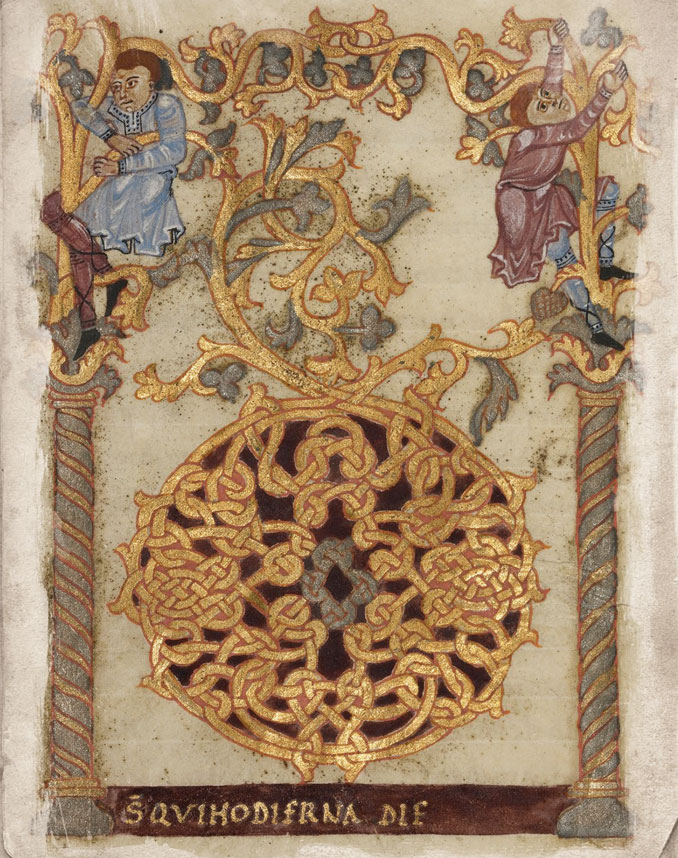 D
S̄QVIHODIERNA DIE